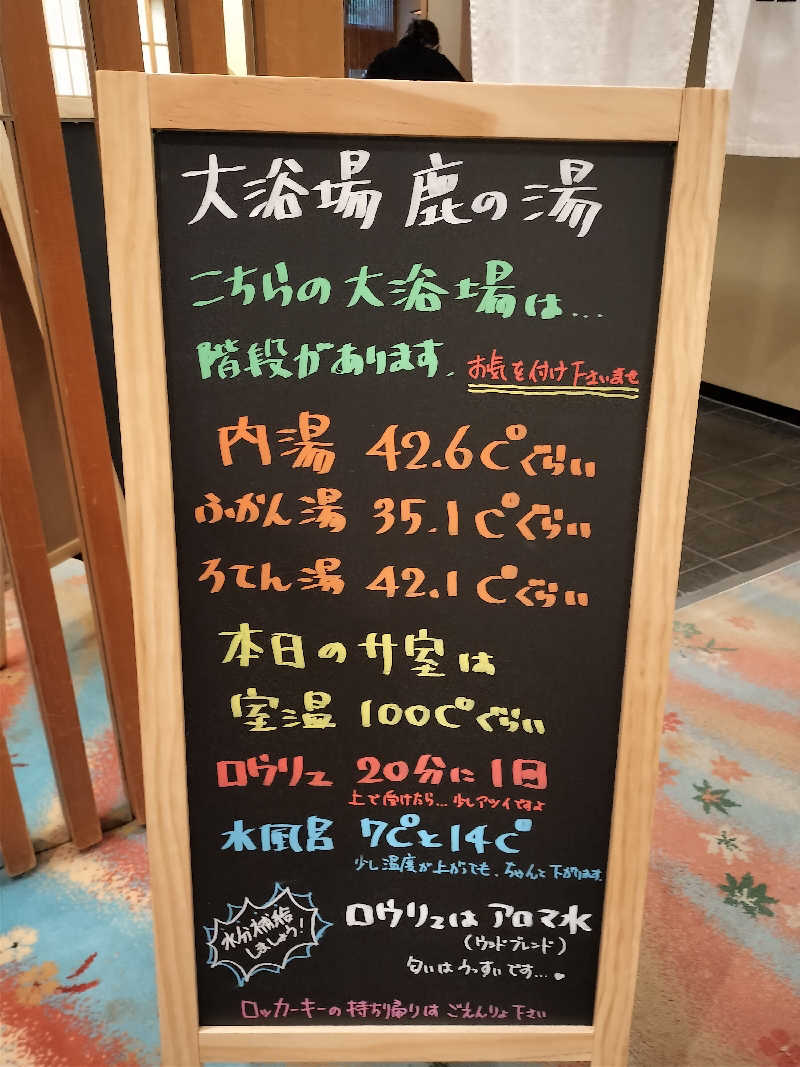 大浴場 鹿の湯
こちらの大浴場は...
階段があります。お気を付け下さいませ
内湯 42.6C°ぐらい
ふかん湯 35.1C°ぐらい
ろてん湯 42.1C°ぐらい
本日のサ室は
室温 100C°ぐらい
ロウリュ 20分に1回
上で受けたら...少しアツイですよ
水風呂 7C°と14C°
少し温度が上がっても、ちゃんと下がります。
水分補給
しましょう!
ロウリュは アロマ水
(ウッドブレンド)
匂いはうっすいです...
ロッカーキーの持ち帰りは ごえんりょ下さい